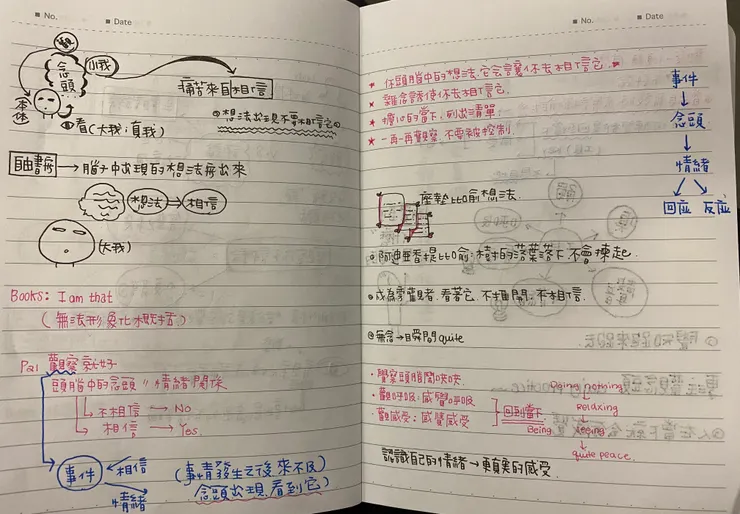 No.
Date
念頭
小我
本体
痛苦來自相信
看(大我,真我)
想法出現是不要相信它
自由書寫 → 腦子中出現的想法寫出來
想法 → 相信
(大我)
Books: I am that
(無法形象化概括)
P21 觀察就好
頭腦中的念頭 〃 情緒關係
不相信 → No
相信 → Yes.
事件
相信
情緒
(事情發生之後來不及)
念頭出現,看到它)
No.
Date
★ 你頭腦中的想法,它會誘導你去相信它.
★ 雜念誘使你去相信它.
★ 擔心的當下,列出清單
★ 一再一再觀察,不要被控制
事件
↓
念頭
↓
情緒
回應 反應
座墊比喻想法
阿迪亞香提比喻:樹的落葉落下不會揀起.
成為旁觀者,看著它,不推開,不相信.
無念→瞬間quite
• 覺察頭腦鬧哄哄
• 觀呼吸:感覺呼吸
• 觀感受:感覺感受
回到當下
Being
Doing nothing
relaxing
seeing
quite peace.
認識自己的情緒→更真的感受.